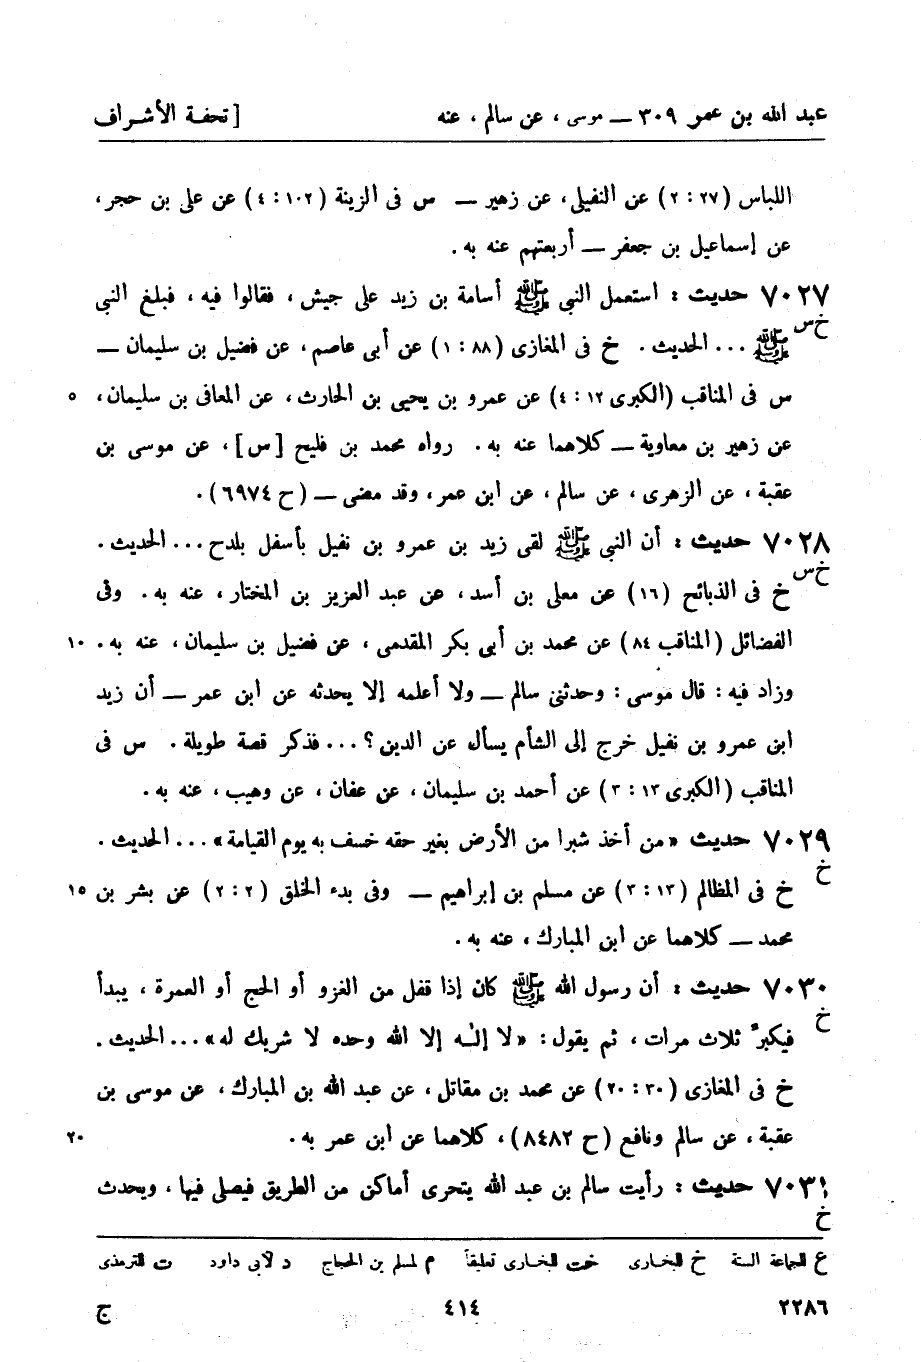 عبد الله بن عمر ٣٠٩ — موسى ، عن سالم ، عنه [ تحفة الأشراف
اللباس (٢٧ : ٢) عن النفيلى، عن زهير — س فى الزينة (١٠٢ : ٤) عن على بن حجر،
عن إسماعيل بن جعفر — أربعتهم عنه به .
٧٠٢٧ حديث : استعمل النبى ﷺ أسامة بن زيد على جيش ، فقالوا فيه ، فبلغ النبى
خ س
ﷺ ... الحديث . خ فى المغازى (٨٨ : ١) عن أبى عاصم، عن فضيل بن سليمان —
س فى المناقب (الكبرى ١٢ : ٤) عن عمرو بن يحيى بن الحارث ، عن المعافى بن سليمان، ٥
عن زهير بن معاوية — كلاهما عنه به . رواه محمد بن فليح [س]، عن موسى بن
عقبة ، عن الزهرى ، عن سالم ، عن ابن عمر، وقد مضى — (ح ٦٩٧٤).
٧٠٢٨ حديث : أن النبى ﷺ لقى زيد بن عمرو بن نفيل بأسفل بلدح ... الحديث .
خ س
خ فى الذبائح (١٦) عن معلى بن أسد، عن عبد العزيز بن المختار، عنه به . وفى
الفضائل (المناقب ٨٤) عن محمد بن أبى بكر المقدمى ، عن فضيل بن سليمان، عنه به . ١٠
وزاد فيه : قال موسى : وحدثنى سالم — ولا أعلمه إلا يحدثه عن ابن عمر — أن زيد
ابن عمرو بن نفيل خرج إلى الشأم يسأل عن الدين ؟ ... فذكر قصة طويلة . س فى
المناقب (الكبرى ١٣ : ٣) عن أحمد بن سليمان ، عن عفان ، عن وهيب، عنه به .
٧٠٢٩ حديث «من أخذ شبرا من الأرض بغير حقه خسف به يوم القيامة» ... الحديث .
خ
خ فى المظالم (١٣ : ٣) عن مسلم بن إبراهيم — وفى بدء الخلق (٢ : ٢) عن بشر بن ١٥
محمد — كلاهما عن ابن المبارك ، عنه به .
٧٠٣٠ حديث : أن رسول الله ﷺ كان إذا قفل من الغزو أو الحج أو العمرة ، يبدأ
خ
فيكبر ثلاث مرات ، ثم يقول : «لا إله إلا الله وحده لا شريك له» ... الحديث .
خ فى المغازى (٣٠ : ٢٠) عن محمد بن مقاتل، عن عبد الله بن المبارك، عن موسى بن
عقبة ، عن سالم ونافع (ح ٨٤٨٢)، كلاهما عن ابن عمر به . ٢٠
٧٠٣١ حديث : رأيت سالم بن عبد الله يتحرى أماكن من الطريق فيصلى فيها ، ويحدث
خ
ع للجماعة الستة خ للبخارى خت للبخارى تعليقاً م لمسلم بن الحجاج د لأبى داود ت للترمذى
٢٢٨٦ ٤١٤ ج